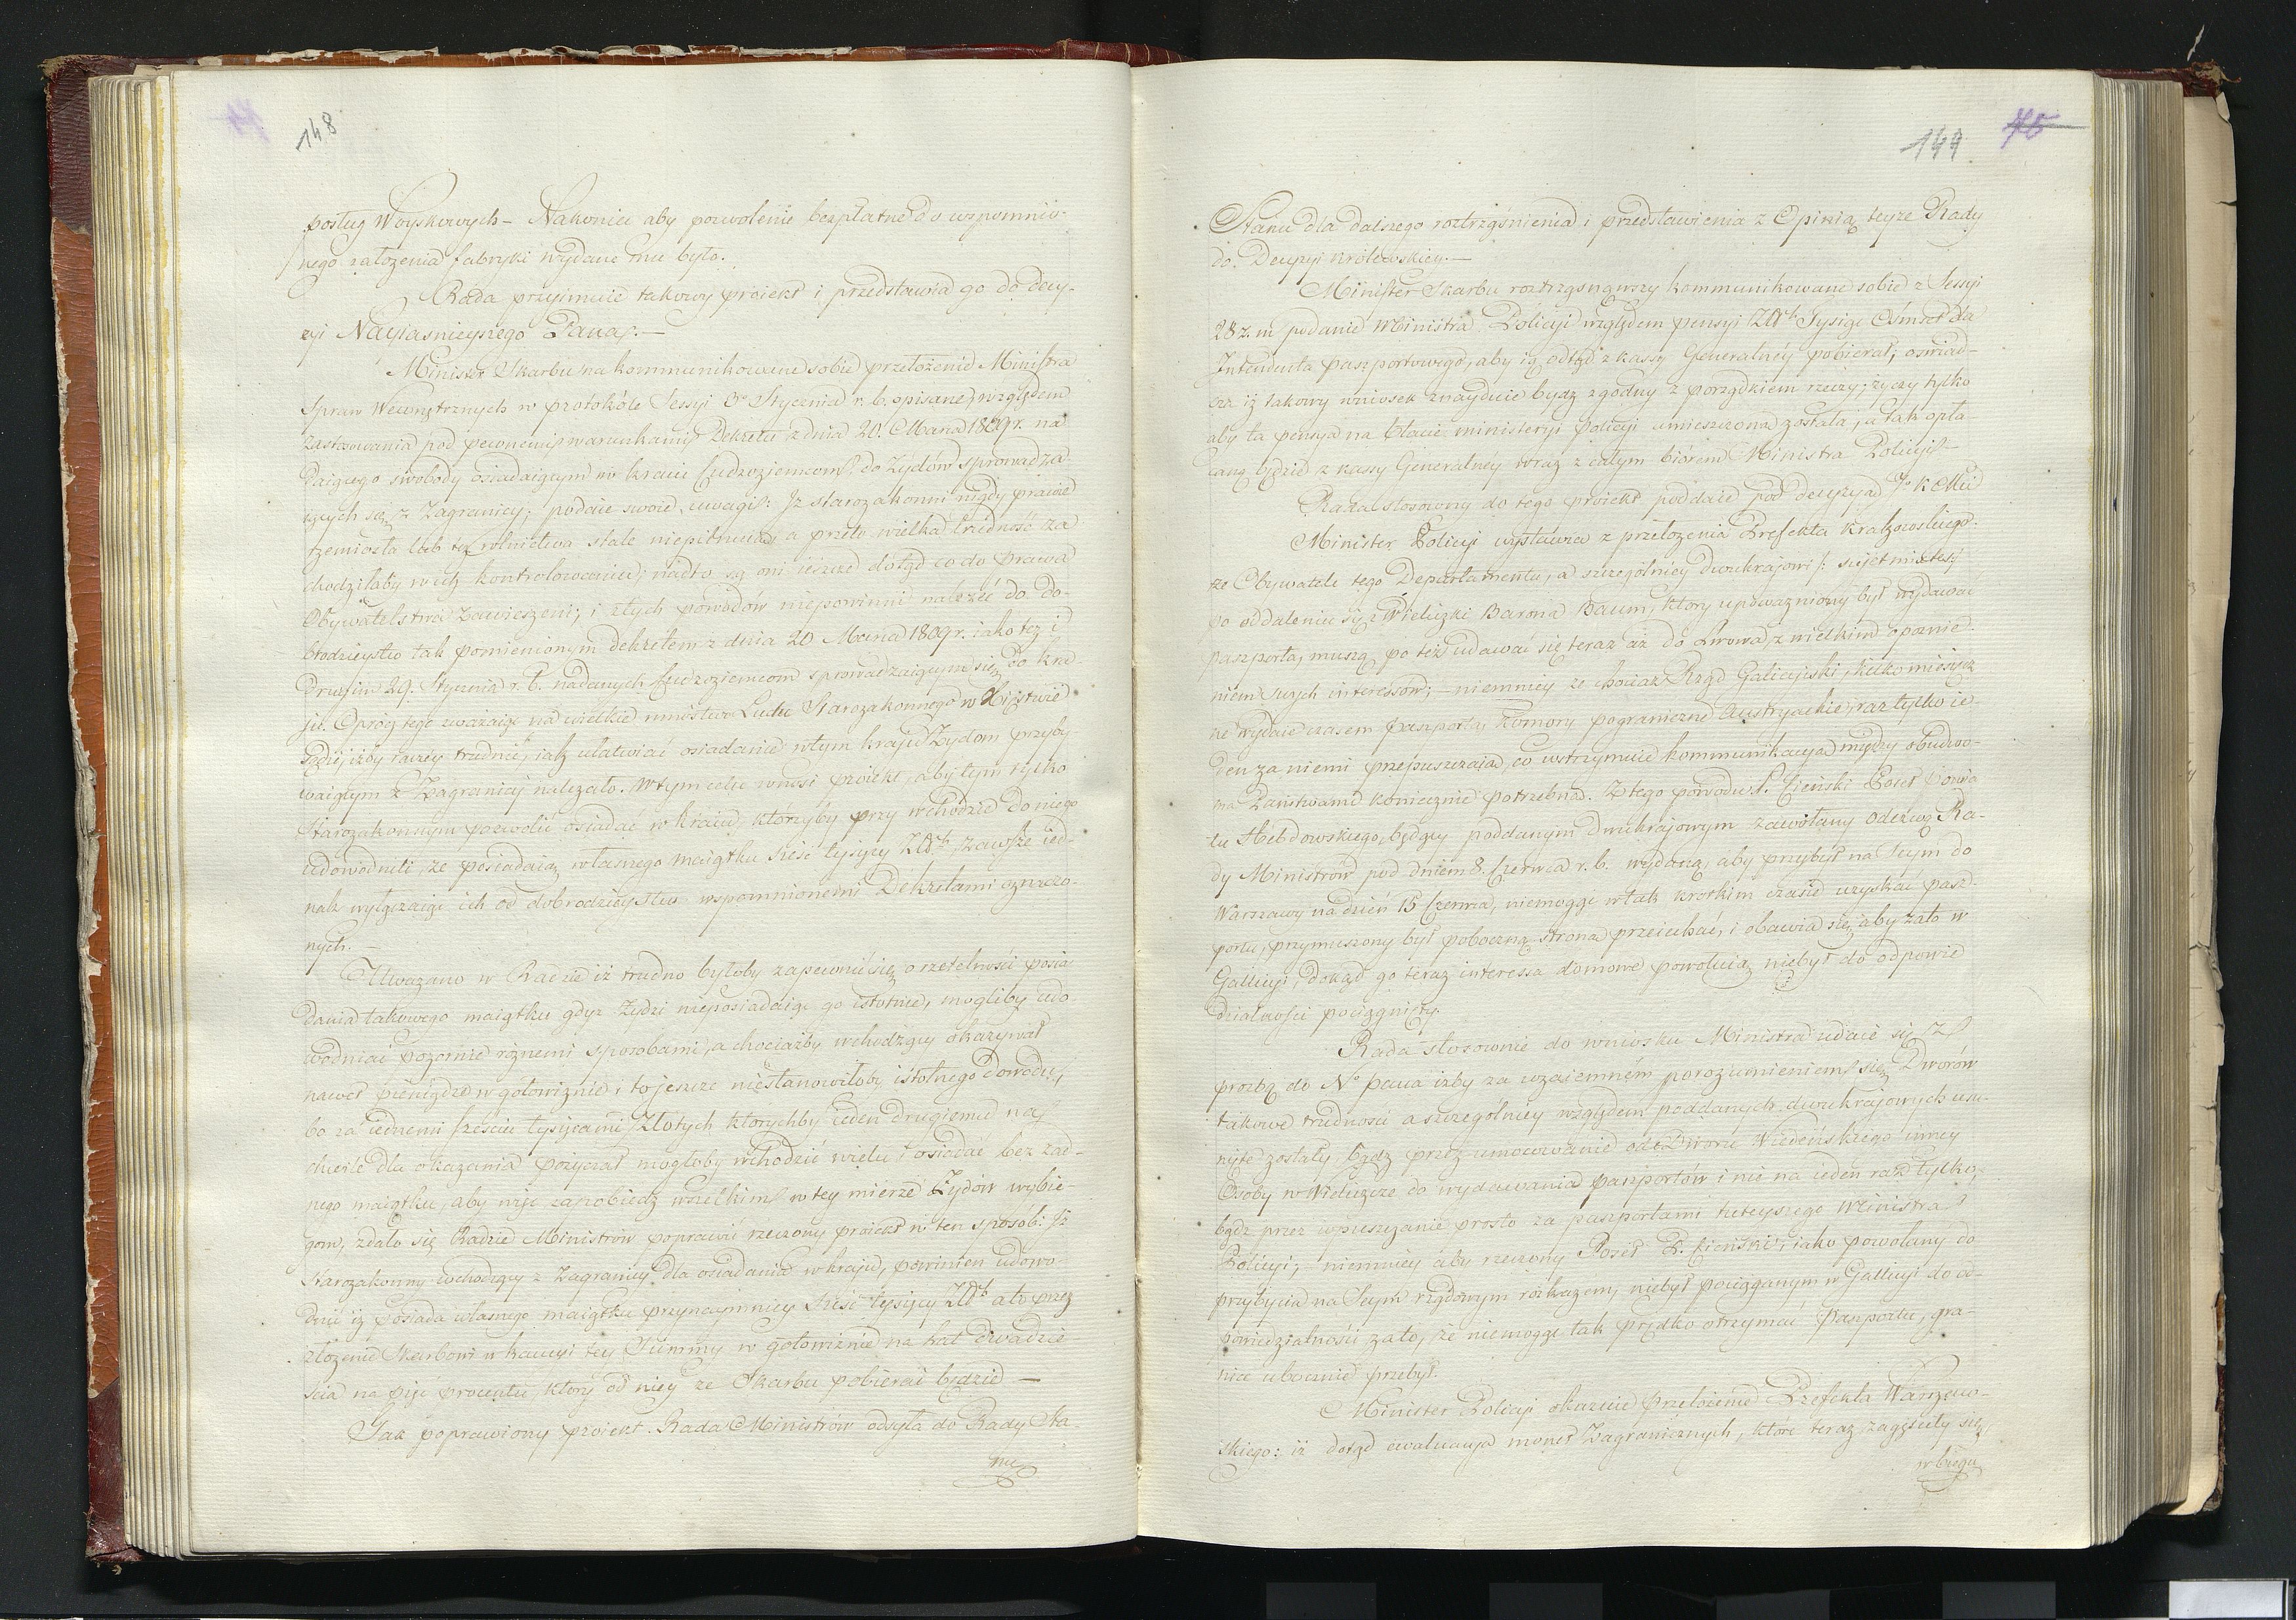 148
posług Woyskowych – Nakoniec aby pozwolenie bezpłatne do wspomnio-
nego założenia fabryki wydane mu było.
Rada przyimuie takowy proiekt i przedstawia go do decy-
zyi Nayiasnieyszego Pana.–
Minister Skarbu na kommunikowane sobie przełożenie Ministra
Spraw Wewnętrznych w protokóle Sessyi 3º Stycznia r. b. opisane, względem
zastosowania pod pewnemi warunkami Dekretu z dnia 20. Marca 1809 r. na
daiącego swobody osiadaiącym w kraiu Cudzoziemcom do Żydów sprowadza
iących się z Zagranicy; podaie swoie uwagi: Iż starozakonni nigdy prawie
rzemiosła lub też rolnictwa stale niepilnuią, a przeto wielka trudność za
chodziłaby w ich kontrolowaniu; nadto są oni ieszcze dotąd co do prawa
Obywatelstwa zawieszeni; i z tych powodów niepowinni należéć do do-
brodzieystw tak pomienionym dekretem z dnia 20 Marca 1809 r. iako też i
Drugim 29. Stycznia r. b. nadanych Cudzoziemcom sprowadzaiącym się do kra-
ju. Oprócz tego zważaiąc na wielkie mnóstwo Ludu Starozakonnego w Xięstwie
sądzi, iżby raczéy trudnić, iak ułatwiać osiadanie w tym kraju Żydom przyby
waiącym z Zagranicy należało. W tym celu wnosi proiekt, aby tym tylko
Starozakonnym pozwolić osiadać w kraiu, którzyby przy wchodzie do niego
udowodnili, że posiadaią własnego maiątku sześć tysięcy Złtch, zawsze ied-
nak wyłączaiąc ich od dobrodzieystw wspomnionemi Dekretami oznaczo-
nych.–
Uważano w Radzie iż trudno byłoby zapewnić się o rzetelności posia
dania takowego maiątku gdyż Żydzi nieposiadaiąc go istotnie, mogliby udo-
wodniać pozornie różnemi sposobami, a chociażby wchodzący okazywał
nawet pieniądze w gotowiznie, to jeszcze niestanowiłoby istotnego dowodu,
bo za iednemi sześciu tysiącami Złotych którychby ieden drugiemu na
chwilę dla okazania pożyczał mogłoby wchodzić wielu i osiadać bez żad-
nego maiątku, aby więc zapobiedz wszelkim w tey mierze Żydów wybie-
gom, zdało się Radzie Ministrów poprawić rzeczony proiekt w ten sposób: Iż
Starozakonny wchodzący z Zagranicy dla osiadania w kraju, powinien udowo-
dnić iż posiada własnego maiątku przynaymniey sześć tysięcy Złtch a to przez
złożenie Skarbowi w kaucyi tey Summy w gotowiznie na lat dwadzie
ścia na pięć procentu, który od niey ze Skarbu pobierać będzie –
Tak poprawiony proiekt Rada Ministrów odsyła do Rady Sta
nu
149
75
Stanu dla dalszego roztrząśnienia i przedstawienia z Opinią teyże Rady
do Decyzyi Królewskiey.–
Minister Skarbu roztrząsnąwszy kommunikowane sobie z Sessyi
28 z. m. podanie Ministra Policyi względem pensyi Złtch Tysiąc Ośmset dla
Intendenta paszportowego, aby ią odtąd z kassy Generalnéy pobierał; oświad-
cza iż takowy wniosek znayduie bydź zgodny z porządkiem rzeczy; życzy tylko
aby ta pensya na Etacie ministeryi policyi umieszczona została, a tak opła-
caną będzie z kassy Generalnéy wraz z całym biórem Ministra Policyi.–
Rada stosowny do tego proiekt poddaie pod decyzyą Jº K Mci
Minister Policyi wystawia z przełożenia Prefekta Krakowskiego.
że Obywatele tego Departamentu, a szczególniey dwukrajowi /: sujets mixtes :/
po oddaleniu się z Wieliczki Barona Baum, który upoważniony był wydawać
paszporta, muszą po też udawać się teraz aż do Lwowa, z wielkim opoźnie-
niem swych interessów; – niemniey że chociaż Rząd Galicyjski, kilko miesięcz
ne wydaie czasem paszporta, komory pograniczne Austryackie, raz tylko ie-
den za niemi przepuszczaią, co wstrzymuie kommunikacyą między obudwo-
ma Państwami koniecznie potrzebną. Z tego powodu P. Cieński Poseł Powia
tu Hebdowskiego, będący poddanym dwukrajowym zawołany odezwą Ra-
dy Ministrów pod dniem 8. Czerwca r. b. wydaną, aby przybył na Seym do
Warszawy na dzień 15 Czerwca, niemogąc w tak krótkim czasie uzyskać pasz-
portu, przymuszony był poboczną stroną przeiechać, i obawia się, aby za to w
Gallicyi, dokąd go teraz interessa domowe powołuią, niebył do odpowie
dzialności pociągnięty.
Rada stosownie do wniosku Ministra udaie się z
prozbą do Nº pana iżby za wzaiemném porozumieniem się Dworów
takowe trudności a szczególniey względem poddanych dwukrajowych usu-
nięte zostały, bądź przez umocowanie od Dworu Wiedeńskiego innéy
Osoby w Wieliczce do wydawania paszportów i nie na ieden raz tylko,
bądź przez wpuszczanie prosto za paszportami tuteyszego Ministra
Policyi; – niemniey aby rzeczony Poseł P. Cieński, iako powołany do
przybycia na Seym rządowym rozkazem, niebył pociąganym w Gallicyi do od-
powiedzialności za to, że niemogąc tak prędko otrzymać paszportu, gra-
nicę ubocznie przebył.
Minister Policyi okazuie przełożenie Prefekta Warszaw-
skiego: iż dotąd ewaluacya monet Zagranicznych, które teraz zagęściły się
w biegu